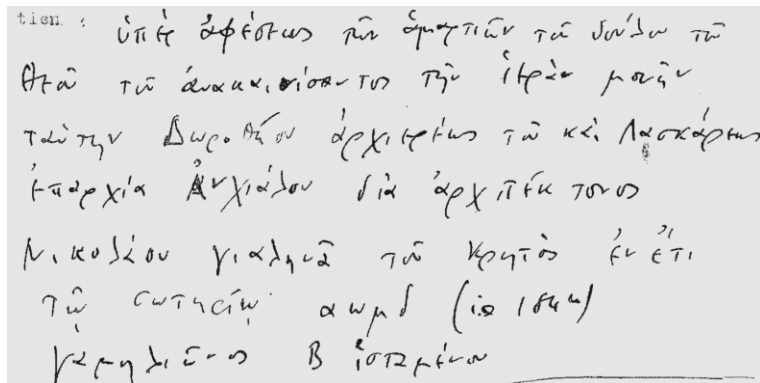 tien : ὑπὲρ ἀφέσεως τῶν ἁμαρτιῶν τοῦ δούλου τοῦ
θεοῦ τοῦ ἀνακαινίσαντος τὴν ἱερὰν μονὴν
ταύτην Δωροθέου ἀρχιερέως τοῦ καὶ Λασκάρεως
ἐπαρχία Ἀγχιάλου διὰ ἀρχιτέκτονος
Νικολάου γιαληνᾶ τοῦ Κρητὸς ἐν ἔτι
τῷ σωτηρίῳ αωμδ (ie 1844)
γαμηλιῶνος Β ἱσταμένου